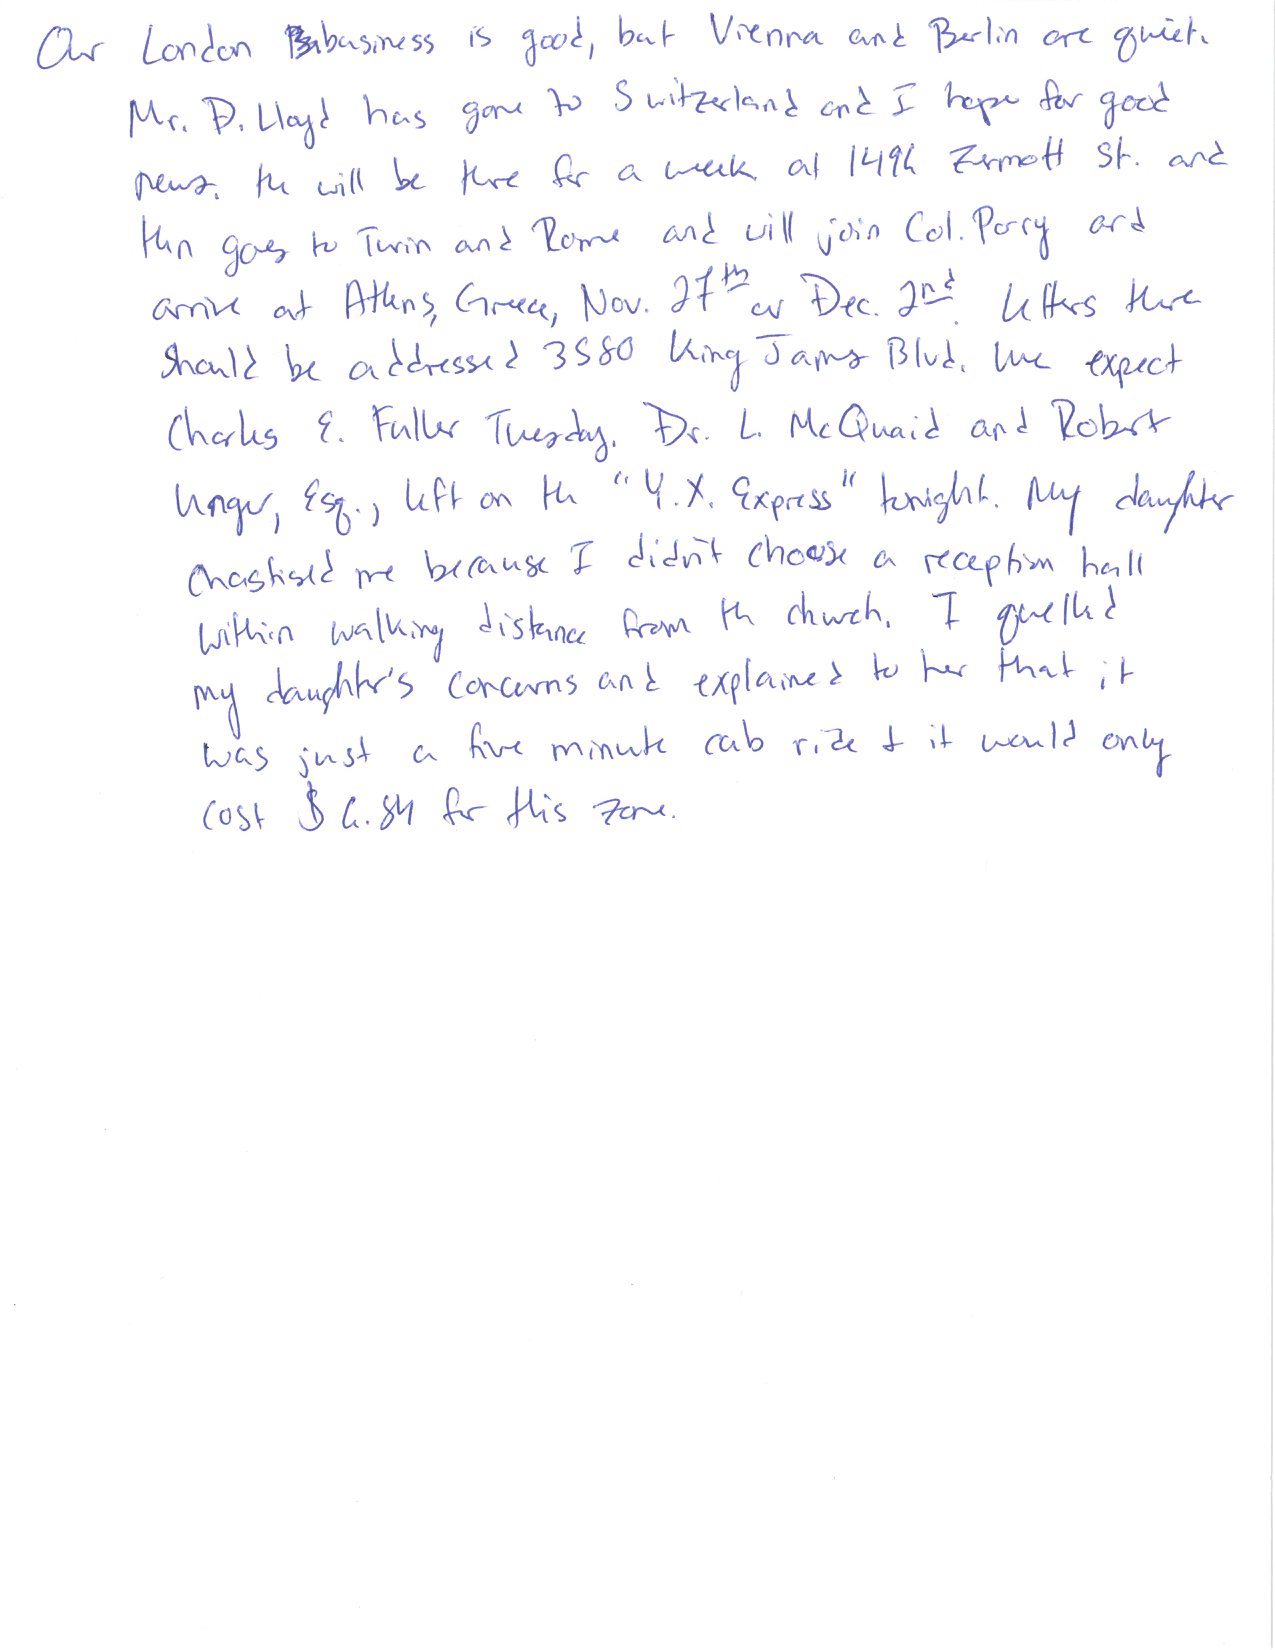 Our London business is good, but Vienna and Berlin are quiet.
Mr. D. Lloyd has gone to Switzerland and I hope for good
news. He will be there for a week at 1496 Zermott St. and
then goes to Turin and Rome and will join Col. Parry and
arrive at Athens, Greece, Nov. 27th or Dec. 2nd. Letters there
should be addressed 3580 King James Blvd. We expect
Charles E. Fuller Tuesday. Dr. L. McQuaid and Robert
Unger, Esq., left on the "Y.X. Express" tonight. My daughter
chastised me because I didn't choose a reception hall
within walking distance from the church. I quelled
my daughter's concerns and explained to her that it
was just a five minute cab ride & it would only
cost $6.84 for this zone.